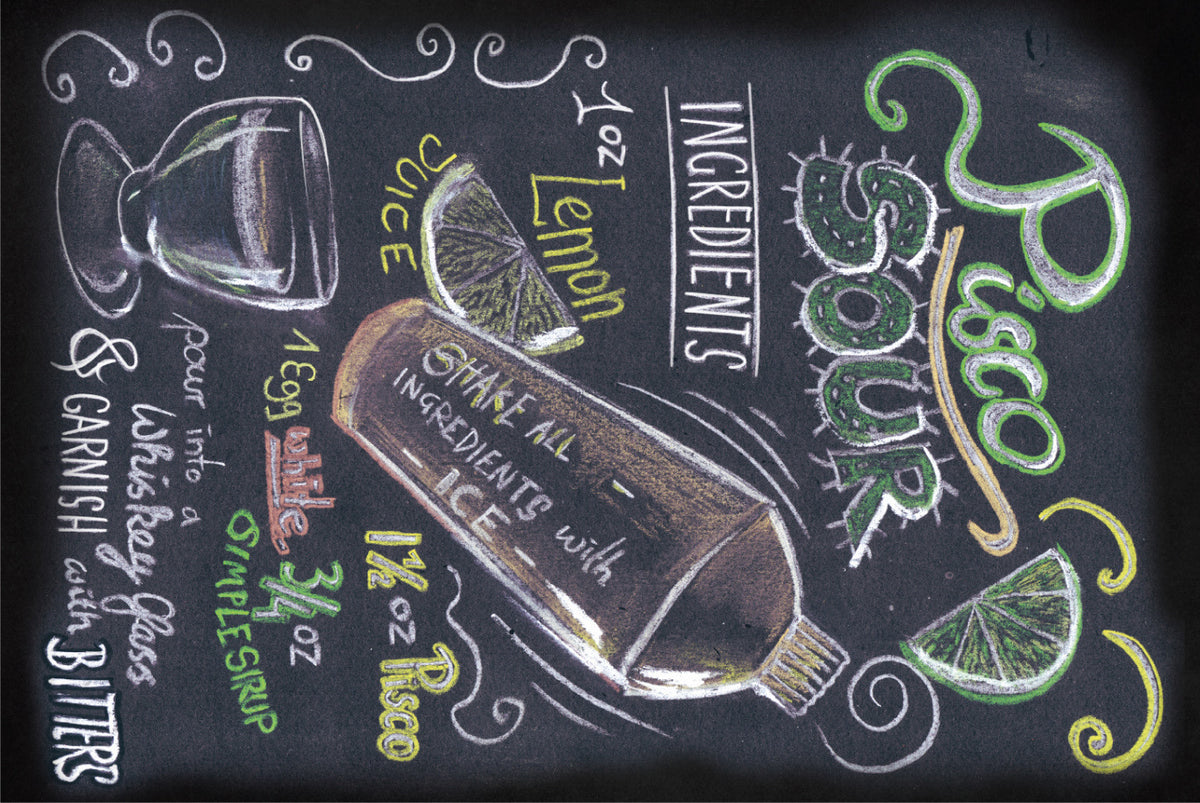 Pisco
SOUR
INGREDIENTS
1 oz Lemon
JUICE
SHAKE ALL
INGREDIENTS with
- ICE -
1 ½ oz Pisco
1 Egg white.
3/4 oz
SIMPLE SIRUP
pour into a
Whiskey glass
& GARNISH with BITTERS